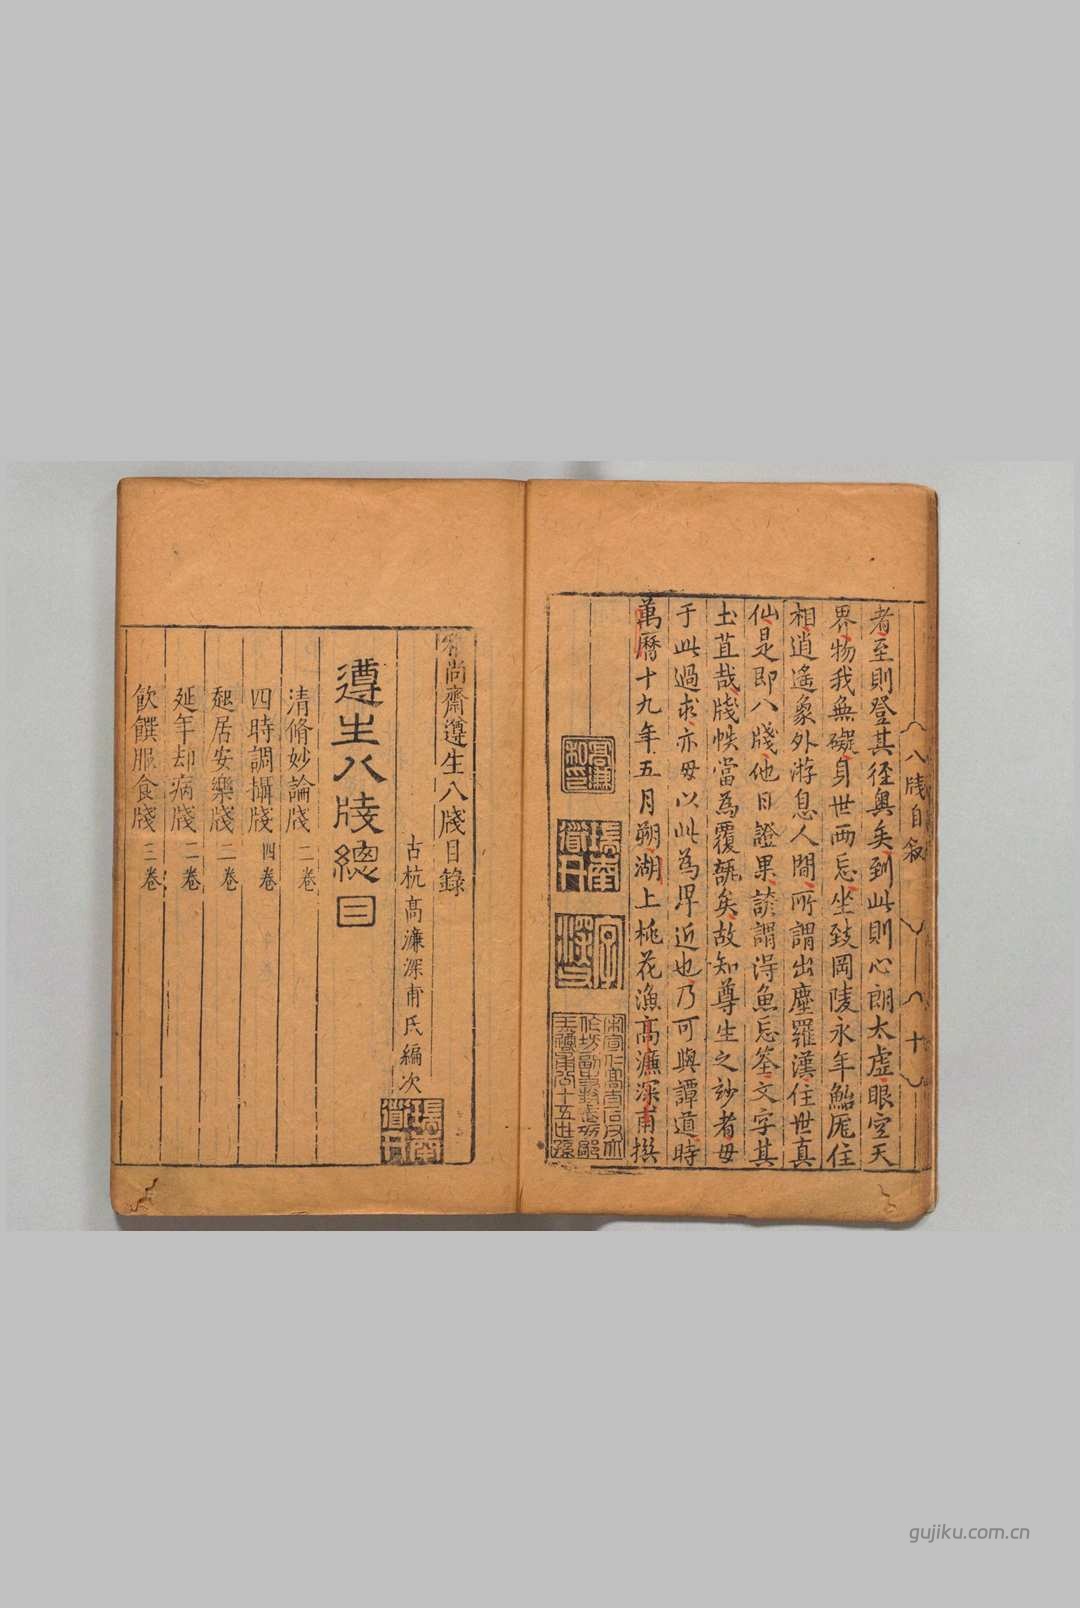 八牋自叙
十
者至則登其徑奧矣到此則心朗太虛眼空天
界物我無礙身世兩忘坐致岡陵永年鮐厖住
相逍遙象外游息人間所謂出塵羅漢住世真
仙是即八牋他日證果諺謂淂魚忘筌文字其
土苴哉牋帙當為覆瓿矣故知尊生之妙者毋
于此過求亦毋以此為卑近也乃可與譚道時
萬曆十九年五月朔湖上桃花漁高濂深甫撰
高濂
私印
瑞南
道人
雅尚齋遵生八牋目錄
古杭高濂深甫氏編次
瑞南
道人
遵生八牋總目
清脩妙論牋 二卷
四時調攝牋 四卷
起居安樂牋 二卷
延年却病牋 二卷
飲饌服食牋 三卷
gujiku.com.cn